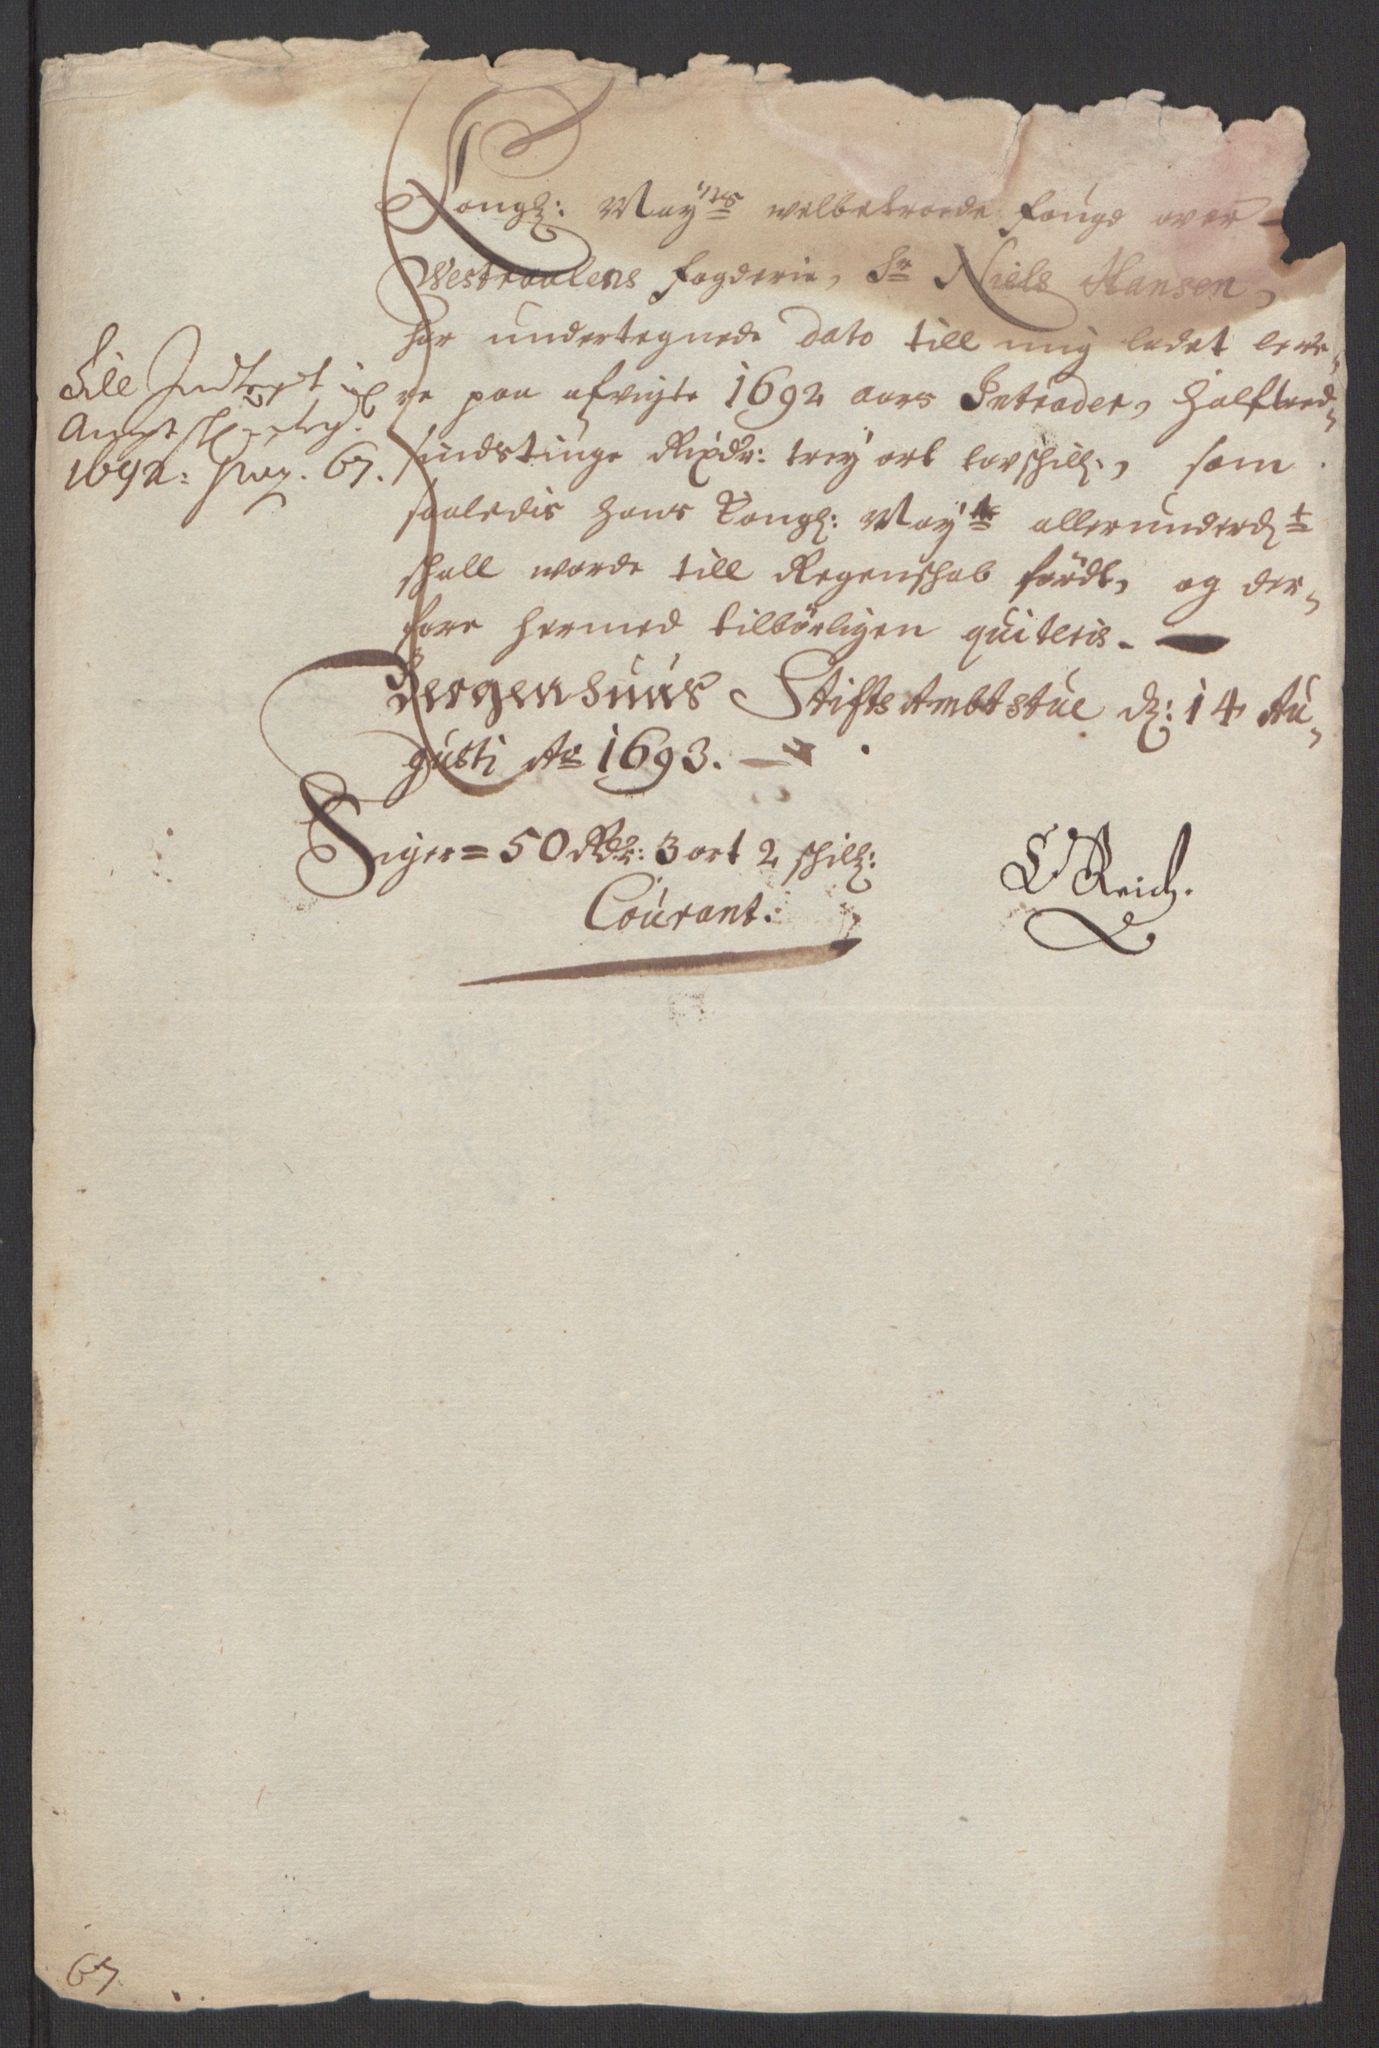 Kongl: May^ts welbetroede fougd over
Westraalens fogderie, Sr Niels Hansen,
har undertegnede dato till mig ladet leve-
re paa afvigte 1692 aars Intrader, halftred-
sindstiuge Rixdr: trey ort tov schill:, som
saaledis hans Kongl: May^ts allerunderd^t
schall worde till Regenschab fördt, og der-
fore hermed tilbörligen quiteris.
Bergenhuus Stifts Ambtstue d: 14 Au-
gusti Ao 1693.
Siger = 50 Rdr: 3 ort 2 schill:
Courant.
Reich.
Till Indtegt
1692: pag. 67.
67.